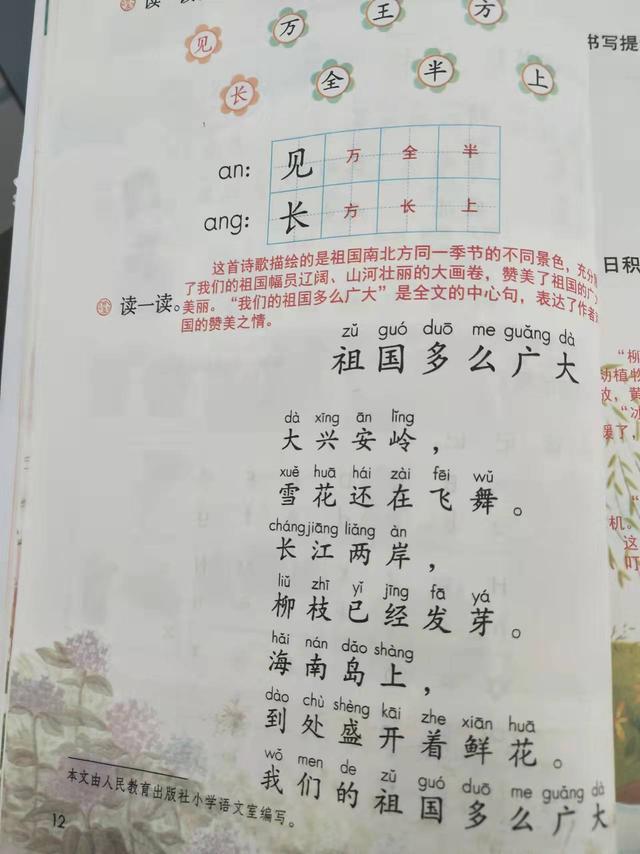 读一读
见 万 王 方
长 全 半 上
an: 见 万 全 半
ang: 长 方 长 上
这首诗歌描绘的是祖国南北方同一季节的不同景色，充分
了我们的祖国幅员辽阔、山河壮丽的大画卷，赞美了祖国的广
美丽。“我们的祖国多么广大”是全文的中心句，表达了作者
国的赞美之情。
读一读。
zǔ guó duō me guǎng dà
祖国多么广大
dà xīng ān lǐng
大兴安岭，
xuě huā hái zài fēi wǔ
雪花还在飞舞。
cháng jiāng liǎng àn
长江两岸，
liǔ zhī yǐ jīng fā yá
柳枝已经发芽。
hǎi nán dǎo shàng
海南岛上，
dào chù shèng kāi zhe xiān huā
到处盛开着鲜花。
wǒ men de zǔ guó duō me guǎng dà
我们的祖国多么广大
本文由人民教育出版社小学语文室编写。
12
书写提
日积
“柳
动植物
放，黄
“冰
暖了，
机。
这
叮